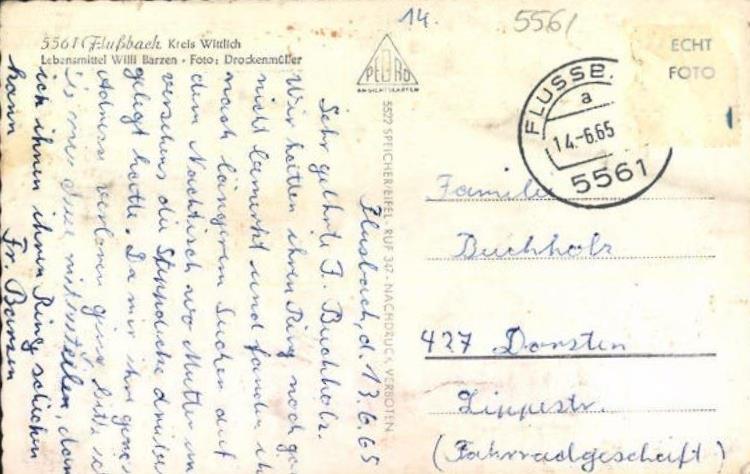 14.
5561
5561 Flußbach Kreis Wittlich
Lebensmittel Willi Barzen · Foto: Drockenmüller
PEDRO
ANSICHTSKARTEN
5522 SPEICHER/EIFEL · RUF 347 · NACHDRUCK VERBOTEN
ECHT
FOTO
FLUSSB.
a
14.-6.65
5561
Flusbach, d. 13.6.65
Sehr geehrte F. Buchholz.
Wir hatten ihren Ring noch
nicht bemerkt und fanden
nach längrem Suchen auf
dem Nachtisch wo Mutter
versehens die Steppdecke
gelegt hatte. Da mir ihre
Adresse verloren ging bitte
mitzuteilen, dam
ich ihnen ihren Ring schicken
kann Fr Barzen
Familie
Buchholz
427 Dorsten
Lippestr.
(Fahrradgeschäft)